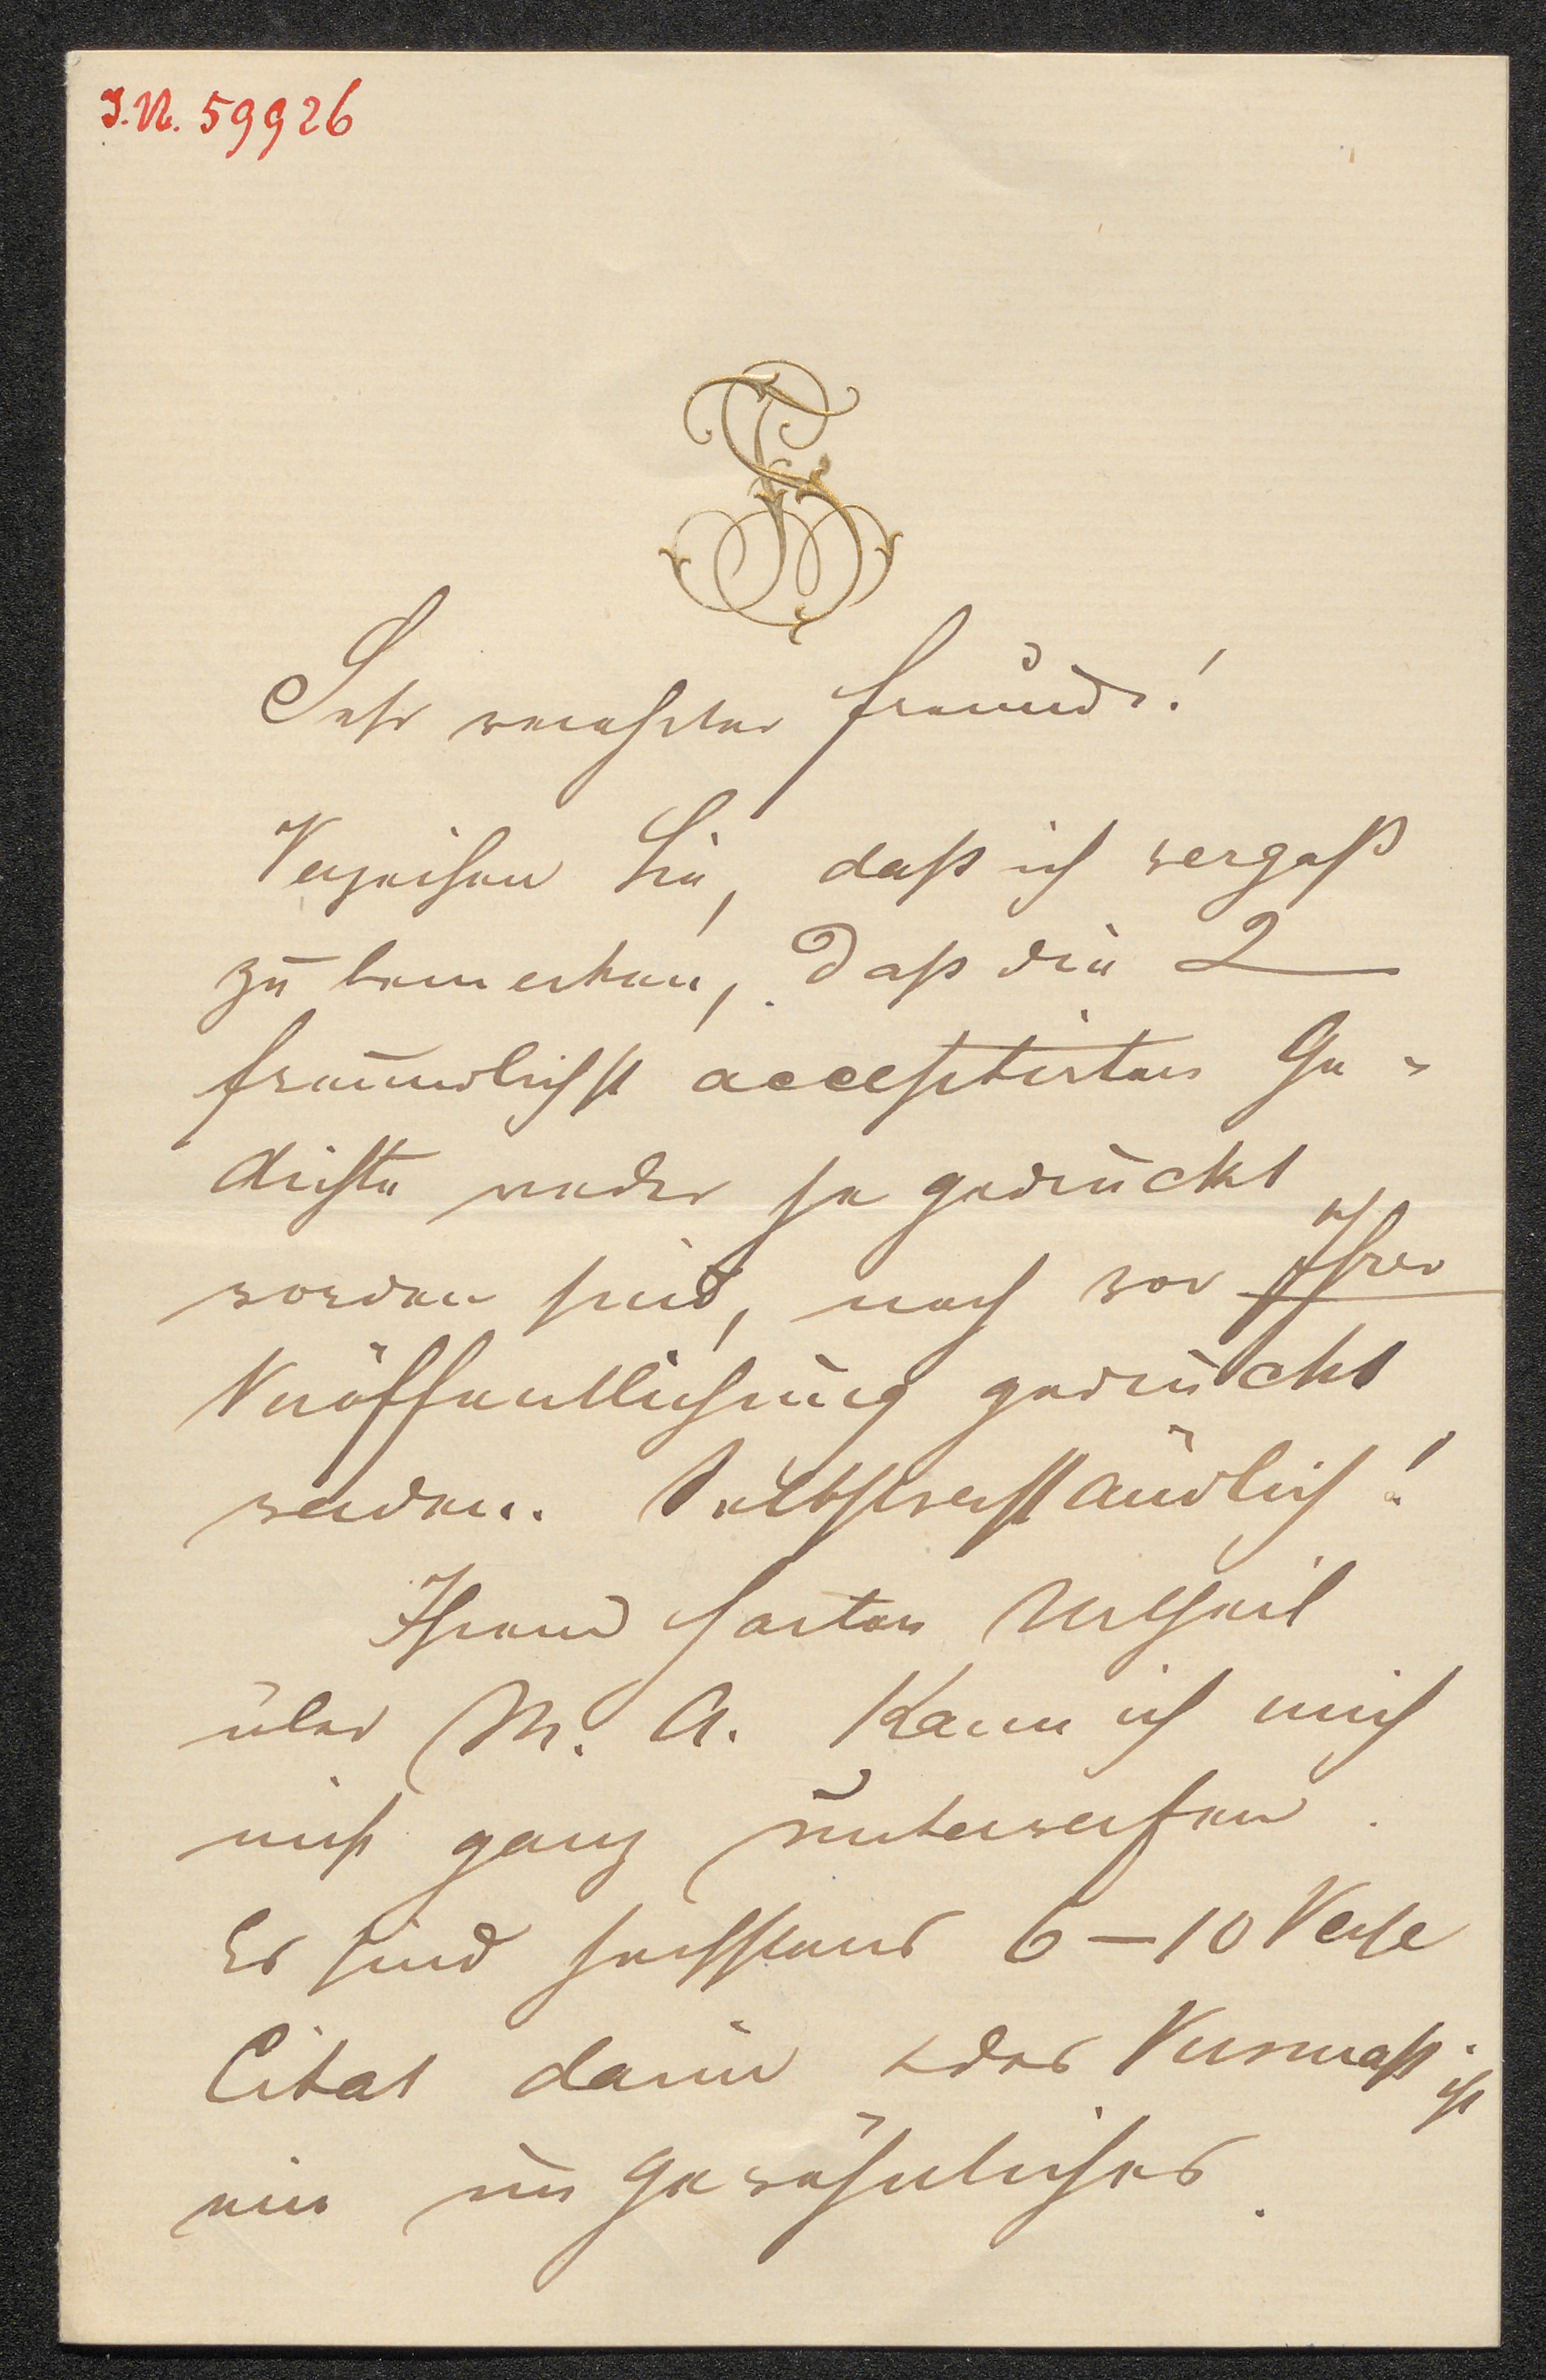 I.N. 59926
Sehr verehrter Freund!
Verzeihen Sie, daß ich vergaß
zu bemerken, daß die 2
freundlichst acceptirten Ge-
dichte weder je gedruckt
worden sind, noch vor Ihrer
Veröffentlichung gedruckt
werden. Selbstverständlich!
Ihrem harten Urtheil
über M. A. kann ich mich
nicht ganz unterwerfen.
Es sind höchstens 6–10 Verse
Citat darin & das Versmaß ist
ein ungewöhnliches.